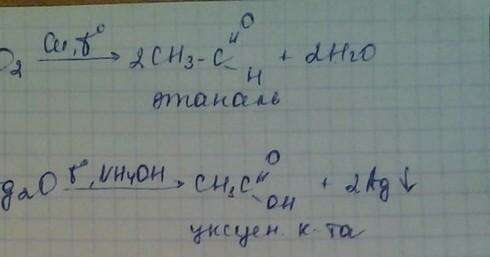 O₂ Cu, t° → 2CH₃-C=O H + 2H₂O
этаналь
g₂O t°, NH₄OH → CH₃C=O OH + 2Ag↓
уксусн. к-та